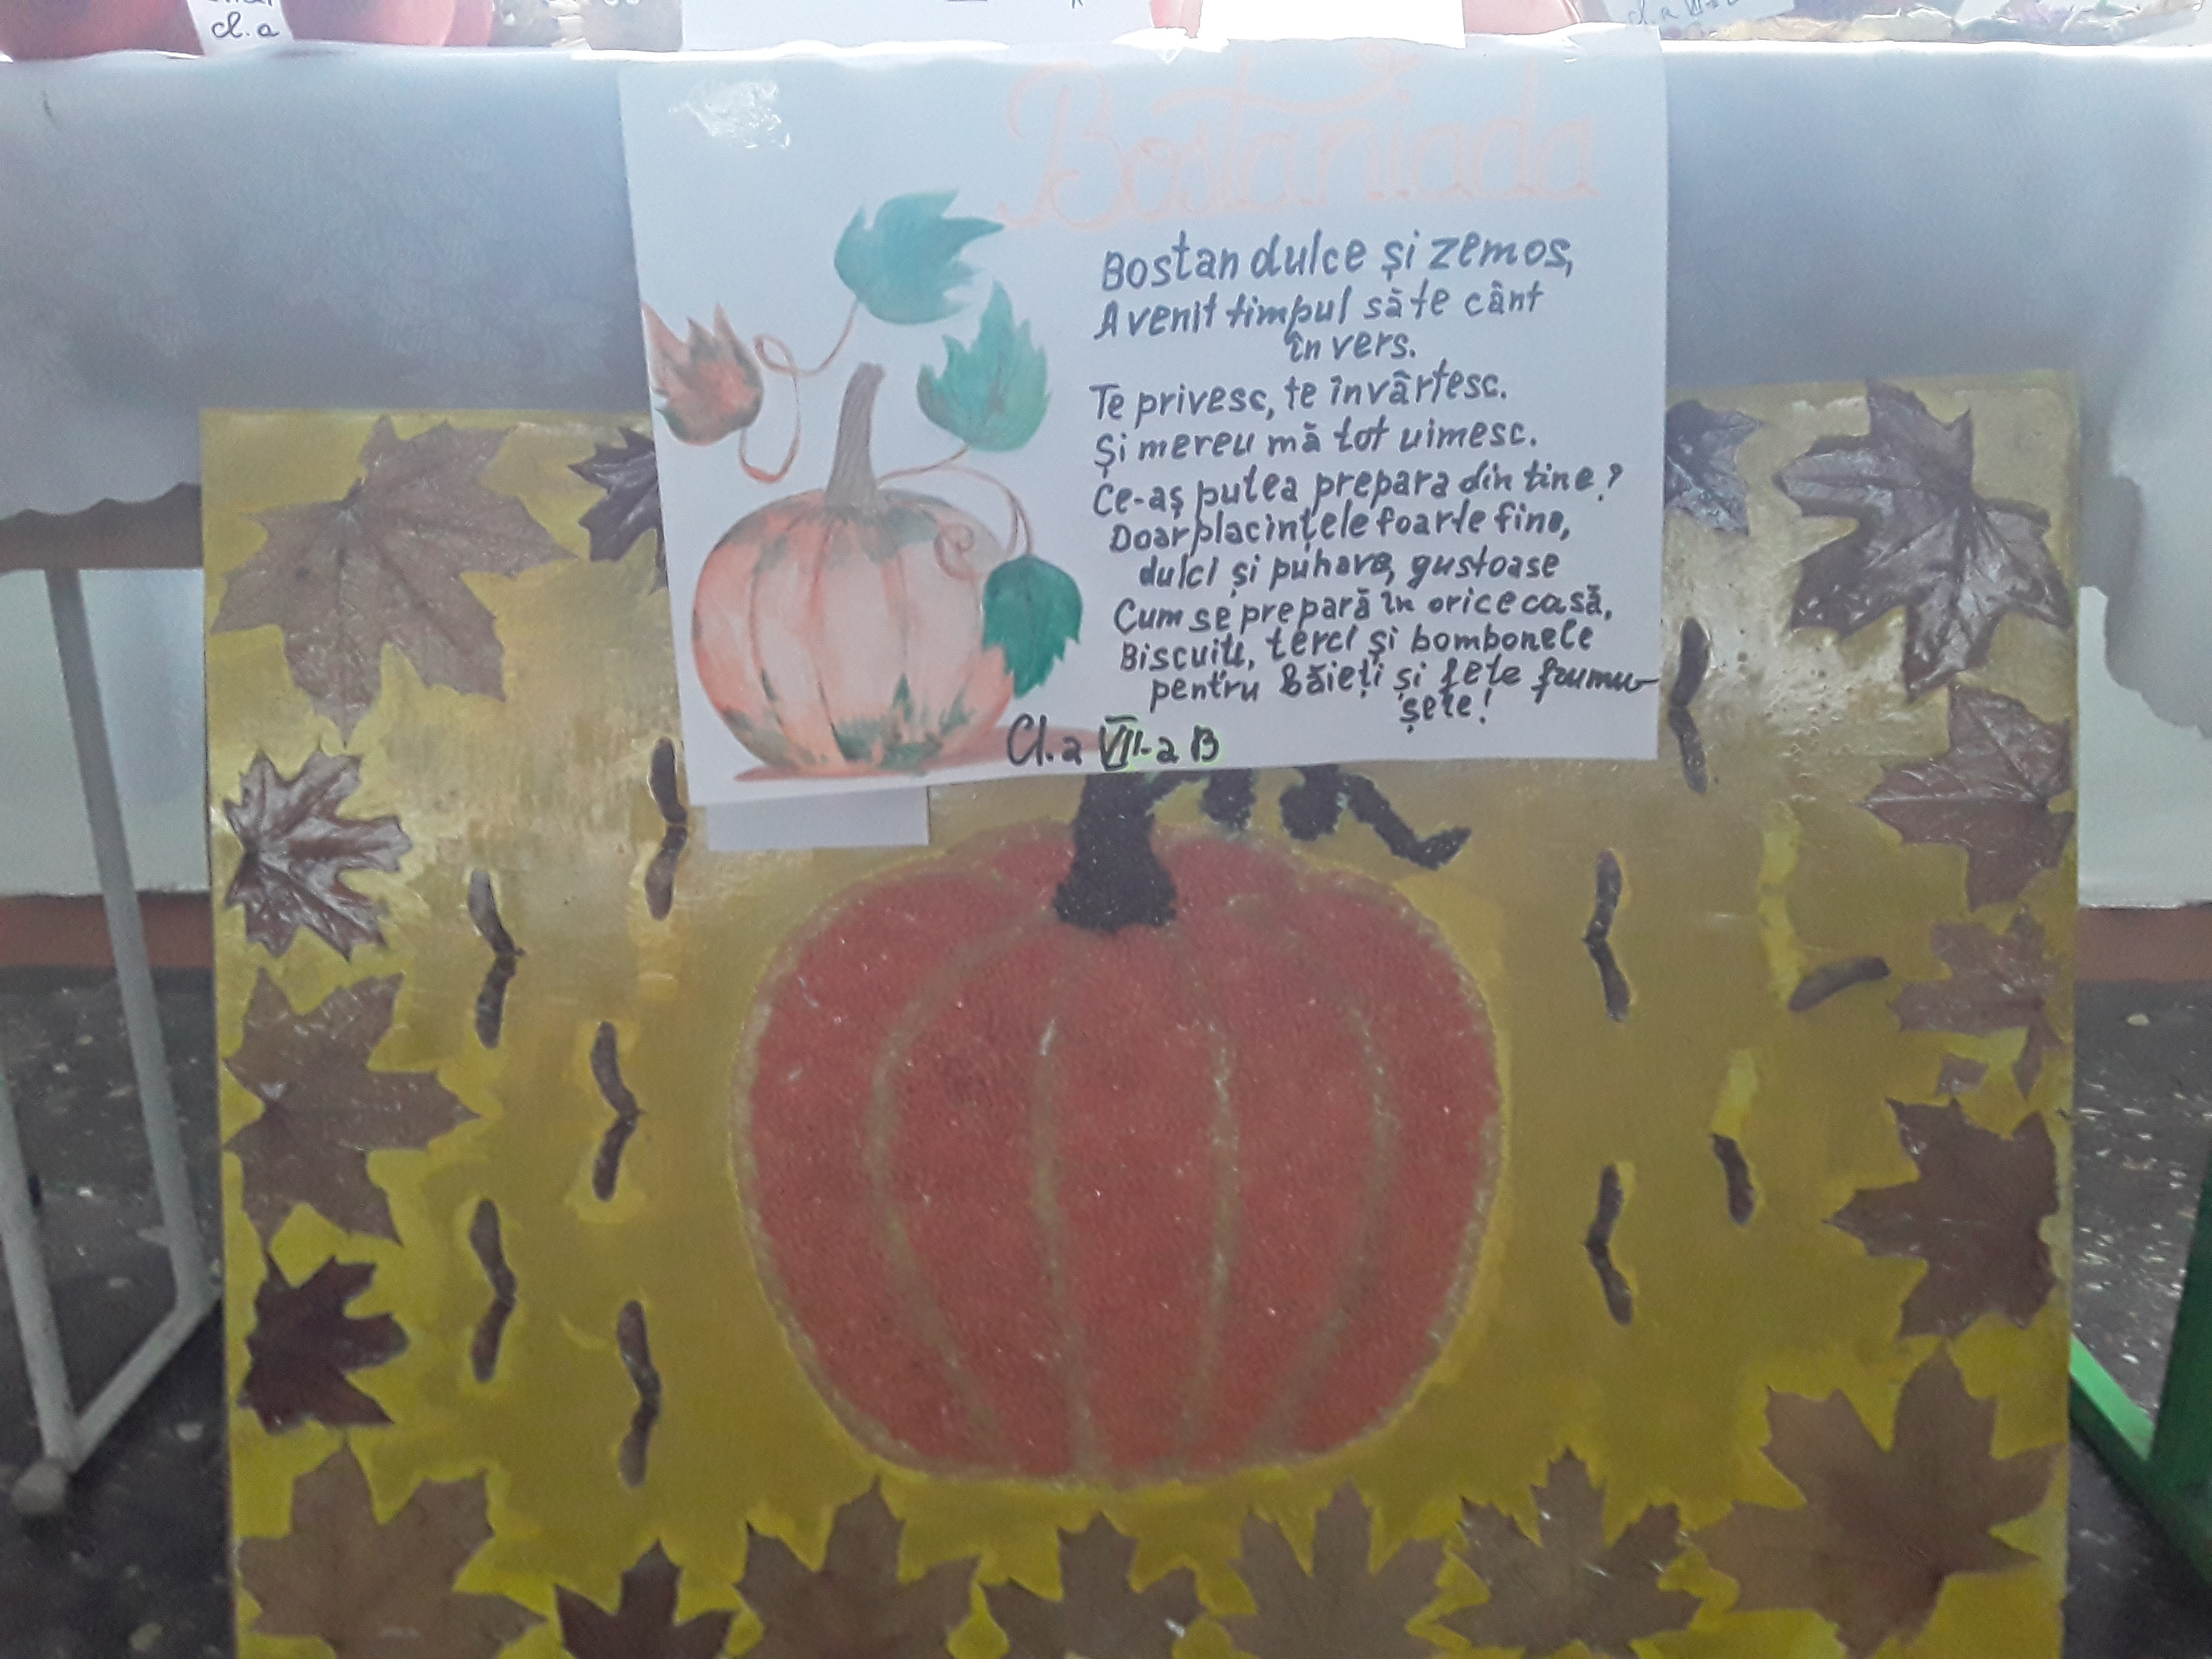 cl. a
Bostaniada
Bostan dulce și zemos,
A venit timpul să te cânt
în vers.
Te privesc, te învârtesc.
Și mereu mă tot uimesc.
Ce-aș putea prepara din tine?
Doar placințele foarte fine,
dulci și puhave, gustoase
Cum se prepară în orice casă,
Biscuiti, terci și bombonele
pentru băieți și fete frumu-
șele!
Cl. a VII-a B